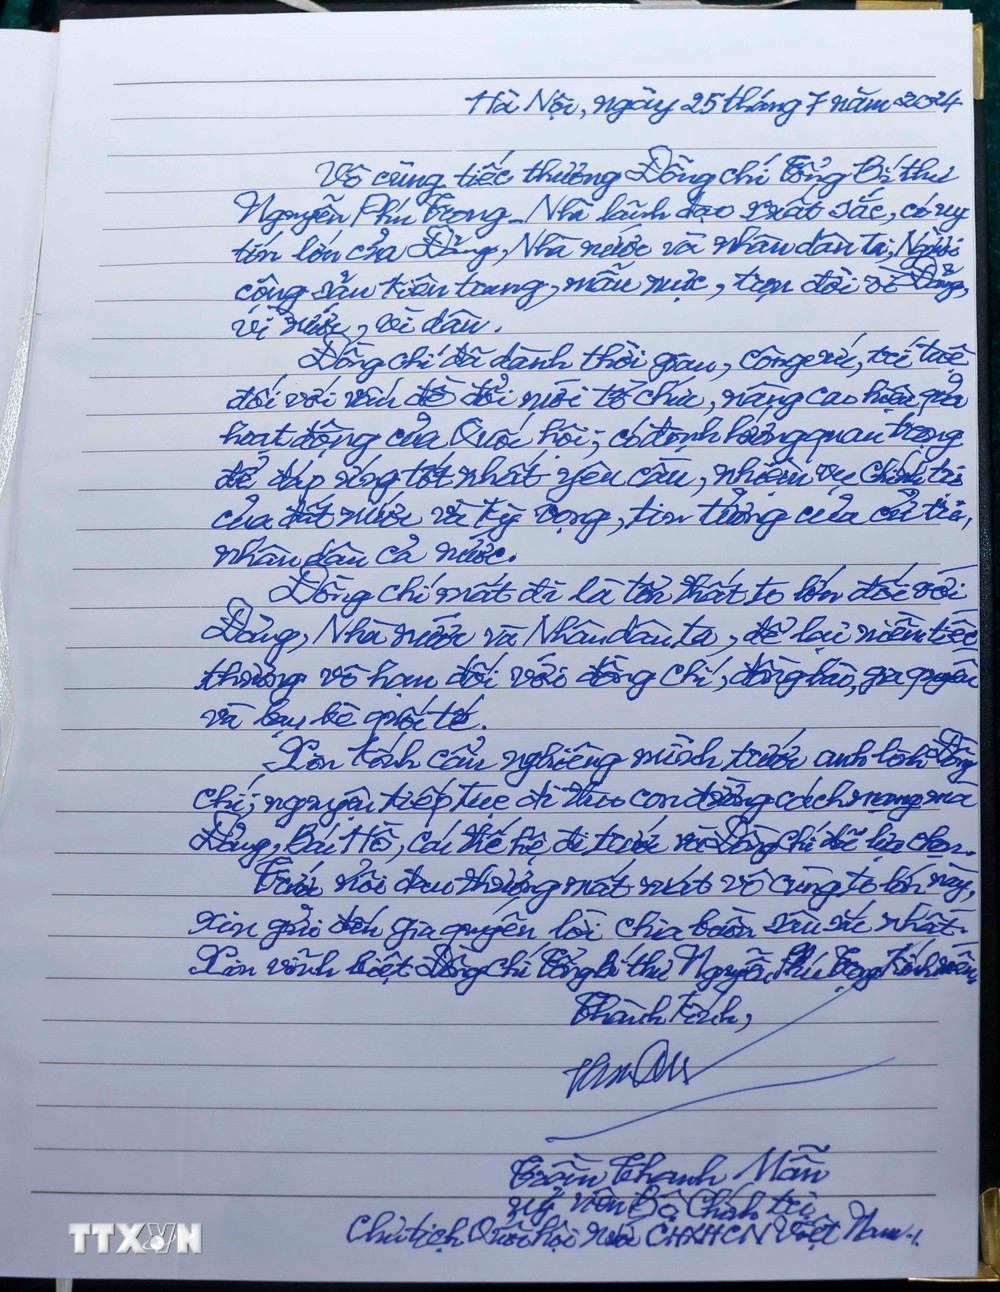 Hà Nội, ngày 25 tháng 7 năm 2024
Vô cùng tiếc thương Đồng chí Tổng Bí thư
Nguyễn Phú Trọng - Nhà lãnh đạo xuất sắc, có uy
tín lớn của Đảng, Nhà nước và nhân dân ta, Người
cộng sản kiên trung, mẫu mực, trọn đời vì Đảng,
vì nước, vì dân.
Đồng chí đã dành thời gian, công sức, trí tuệ
đối với vấn đề đổi mới tổ chức, nâng cao hiệu quả
hoạt động của Quốc hội; có định hướng quan trọng
để đáp ứng tốt nhất yêu cầu, nhiệm vụ chính trị
của đất nước và kỳ vọng, tin tưởng của cử tri,
nhân dân cả nước.
Đồng chí mất đi là tổn thất to lớn đối với
Đảng, Nhà nước và Nhân dân ta, để lại niềm tiếc
thương vô hạn đối với đồng chí, đồng bào, gia quyến
và bạn bè quốc tế.
Xin kính cẩn nghiêng mình trước anh linh Đồng
chí; nguyện tiếp tục đi theo con đường cách mạng mà
Đảng, Bác Hồ, các thế hệ đi trước và Đồng chí đã lựa chọn.
Trước nỗi đau thương mất mát vô cùng to lớn này,
xin gửi đến gia quyến lời chia buồn sâu sắc nhất.
Xin vĩnh biệt Đồng chí Tổng bí thư Nguyễn Phú Trọng kính mến
Thành kính,
Trần Thanh Mẫn
Uỷ viên Bộ Chính trị
Chủ tịch Quốc hội nước CHXHCN Việt Nam
TTXVN